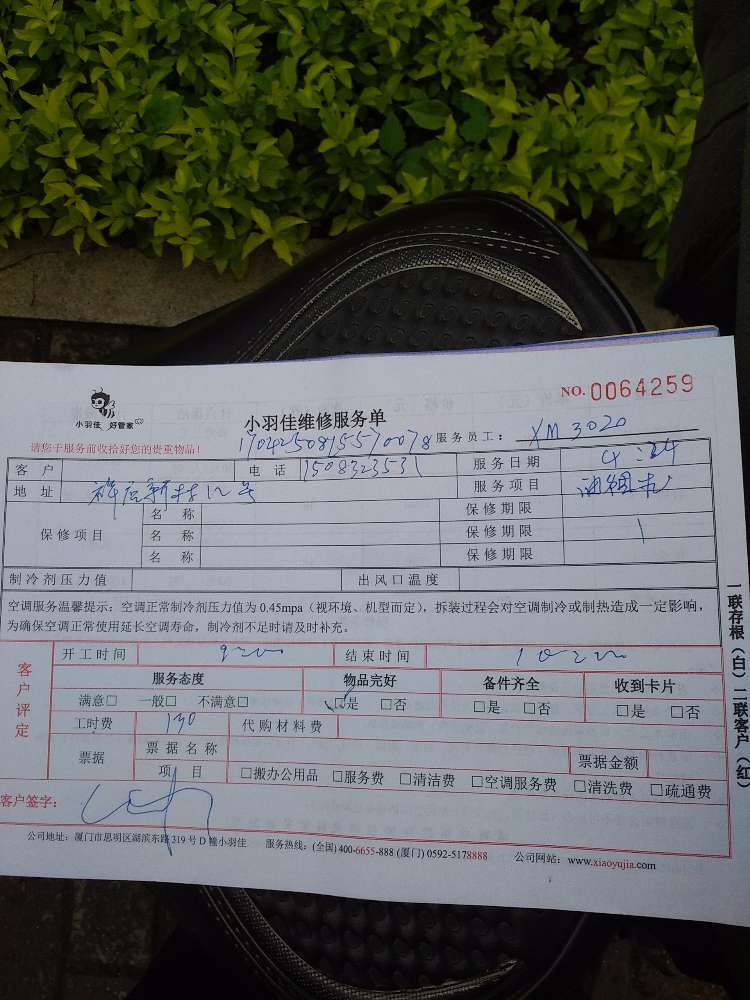 NO. 0064259
小羽佳 好管家
小羽佳维修服务单
请您于服务前收拾好您的贵重物品!
17042508155570078 服务员工: XM3020
客户 电话 1508323531 服务日期 4:24
地址 祥店新村12号 服务项目 油烟机
保修项目 名称 保修期限
名称 保修期限
名称 保修期限
制冷剂压力值 出风口温度
空调服务温馨提示:空调正常制冷剂压力值为0.45mpa(视环境、机型而定),拆装过程会对空调制冷或制热造成一定影响,
为确保空调正常使用延长空调寿命,制冷剂不足时请及时补充。
客户评定
开工时间 结束时间
服务态度 物品完好 备件齐全 收到卡片
满意□ 一般□ 不满意□ □是 □否 □是 □否 □是 □否
工时费 130 代购材料费
票据 票据名称 票据金额
项目 □搬办公用品 □服务费 □清洁费 □空调服务费 □清洗费 □疏通费
客户签字:
公司地址:厦门市思明区湖滨东路319号D幢小羽佳 服务热线:(全国)400-6655-888(厦门)0592-5178888 公司网站:www.xiaoyujia.com
一联存根(白)二联客户(红)